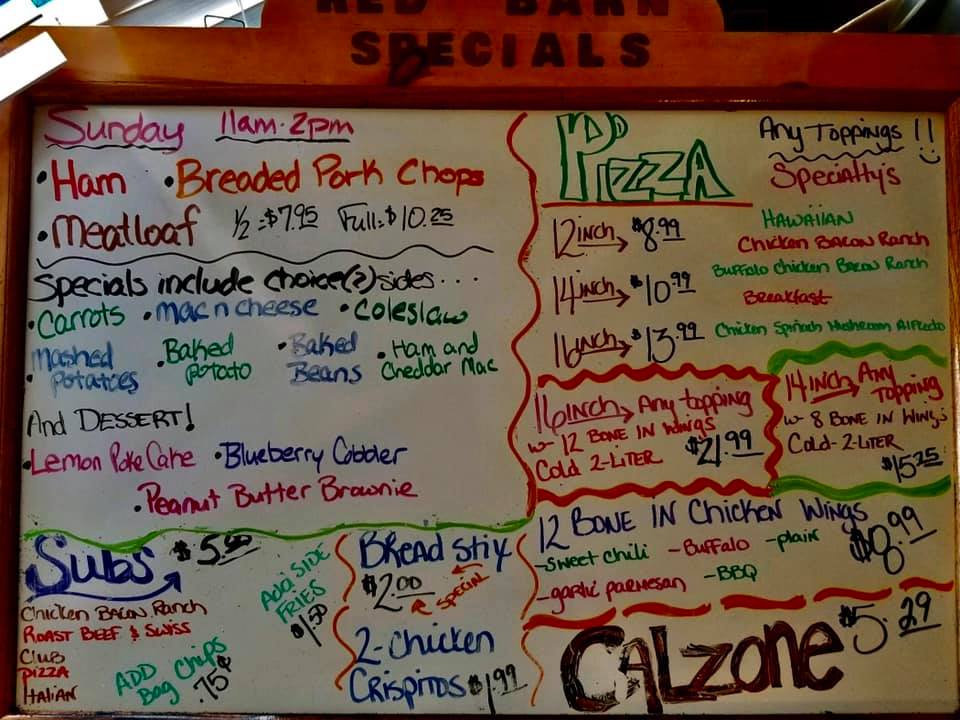 RED BARN
SPECIALS
Sunday 11am-2pm
• Ham • Breaded Pork Chops
• Meatloaf 1/2=$7.95 Full=$10.25
Specials include choice(2)sides...
• Carrots • Mac n cheese • Coleslaw
• Mashed Potatoes • Baked Potato • Baked Beans • Ham and Cheddar Mac
And DESSERT!
• Lemon Poke Cake • Blueberry Cobbler
• Peanut Butter Brownie
PIZZA
Any Toppings !!
Specialty's
12 inch → $8.99
14 inch → $10.99
16 inch → $13.99
HAWAIIAN
Chicken BACON Ranch
Buffalo Chicken Bacon Ranch
Breakfast
Chicken Spinach Mushroom Alfredo
16 inch → Any topping
w- 12 BONE IN Wings
Cold 2-LITER $21.99
14 inch → Any
TOPPING
w- 8 BONE IN Wings
Cold- 2-LITER
$15.25
12 BONE IN Chicken Wings
$8.99
-Sweet Chili -Buffalo -plain
-garlic parmesan -BBQ
Subs $5.50
Chicken BACON Ranch
ROAST BEEF & SWISS
Club
PIZZA
ITALIAN
Add SIDE
FRIES
$1.50
ADD Chips
Bag .75¢
BREAD Stix
$2.00 SPECIAL
2-Chicken
CRISPITOS $1.99
CALZONE $5.29